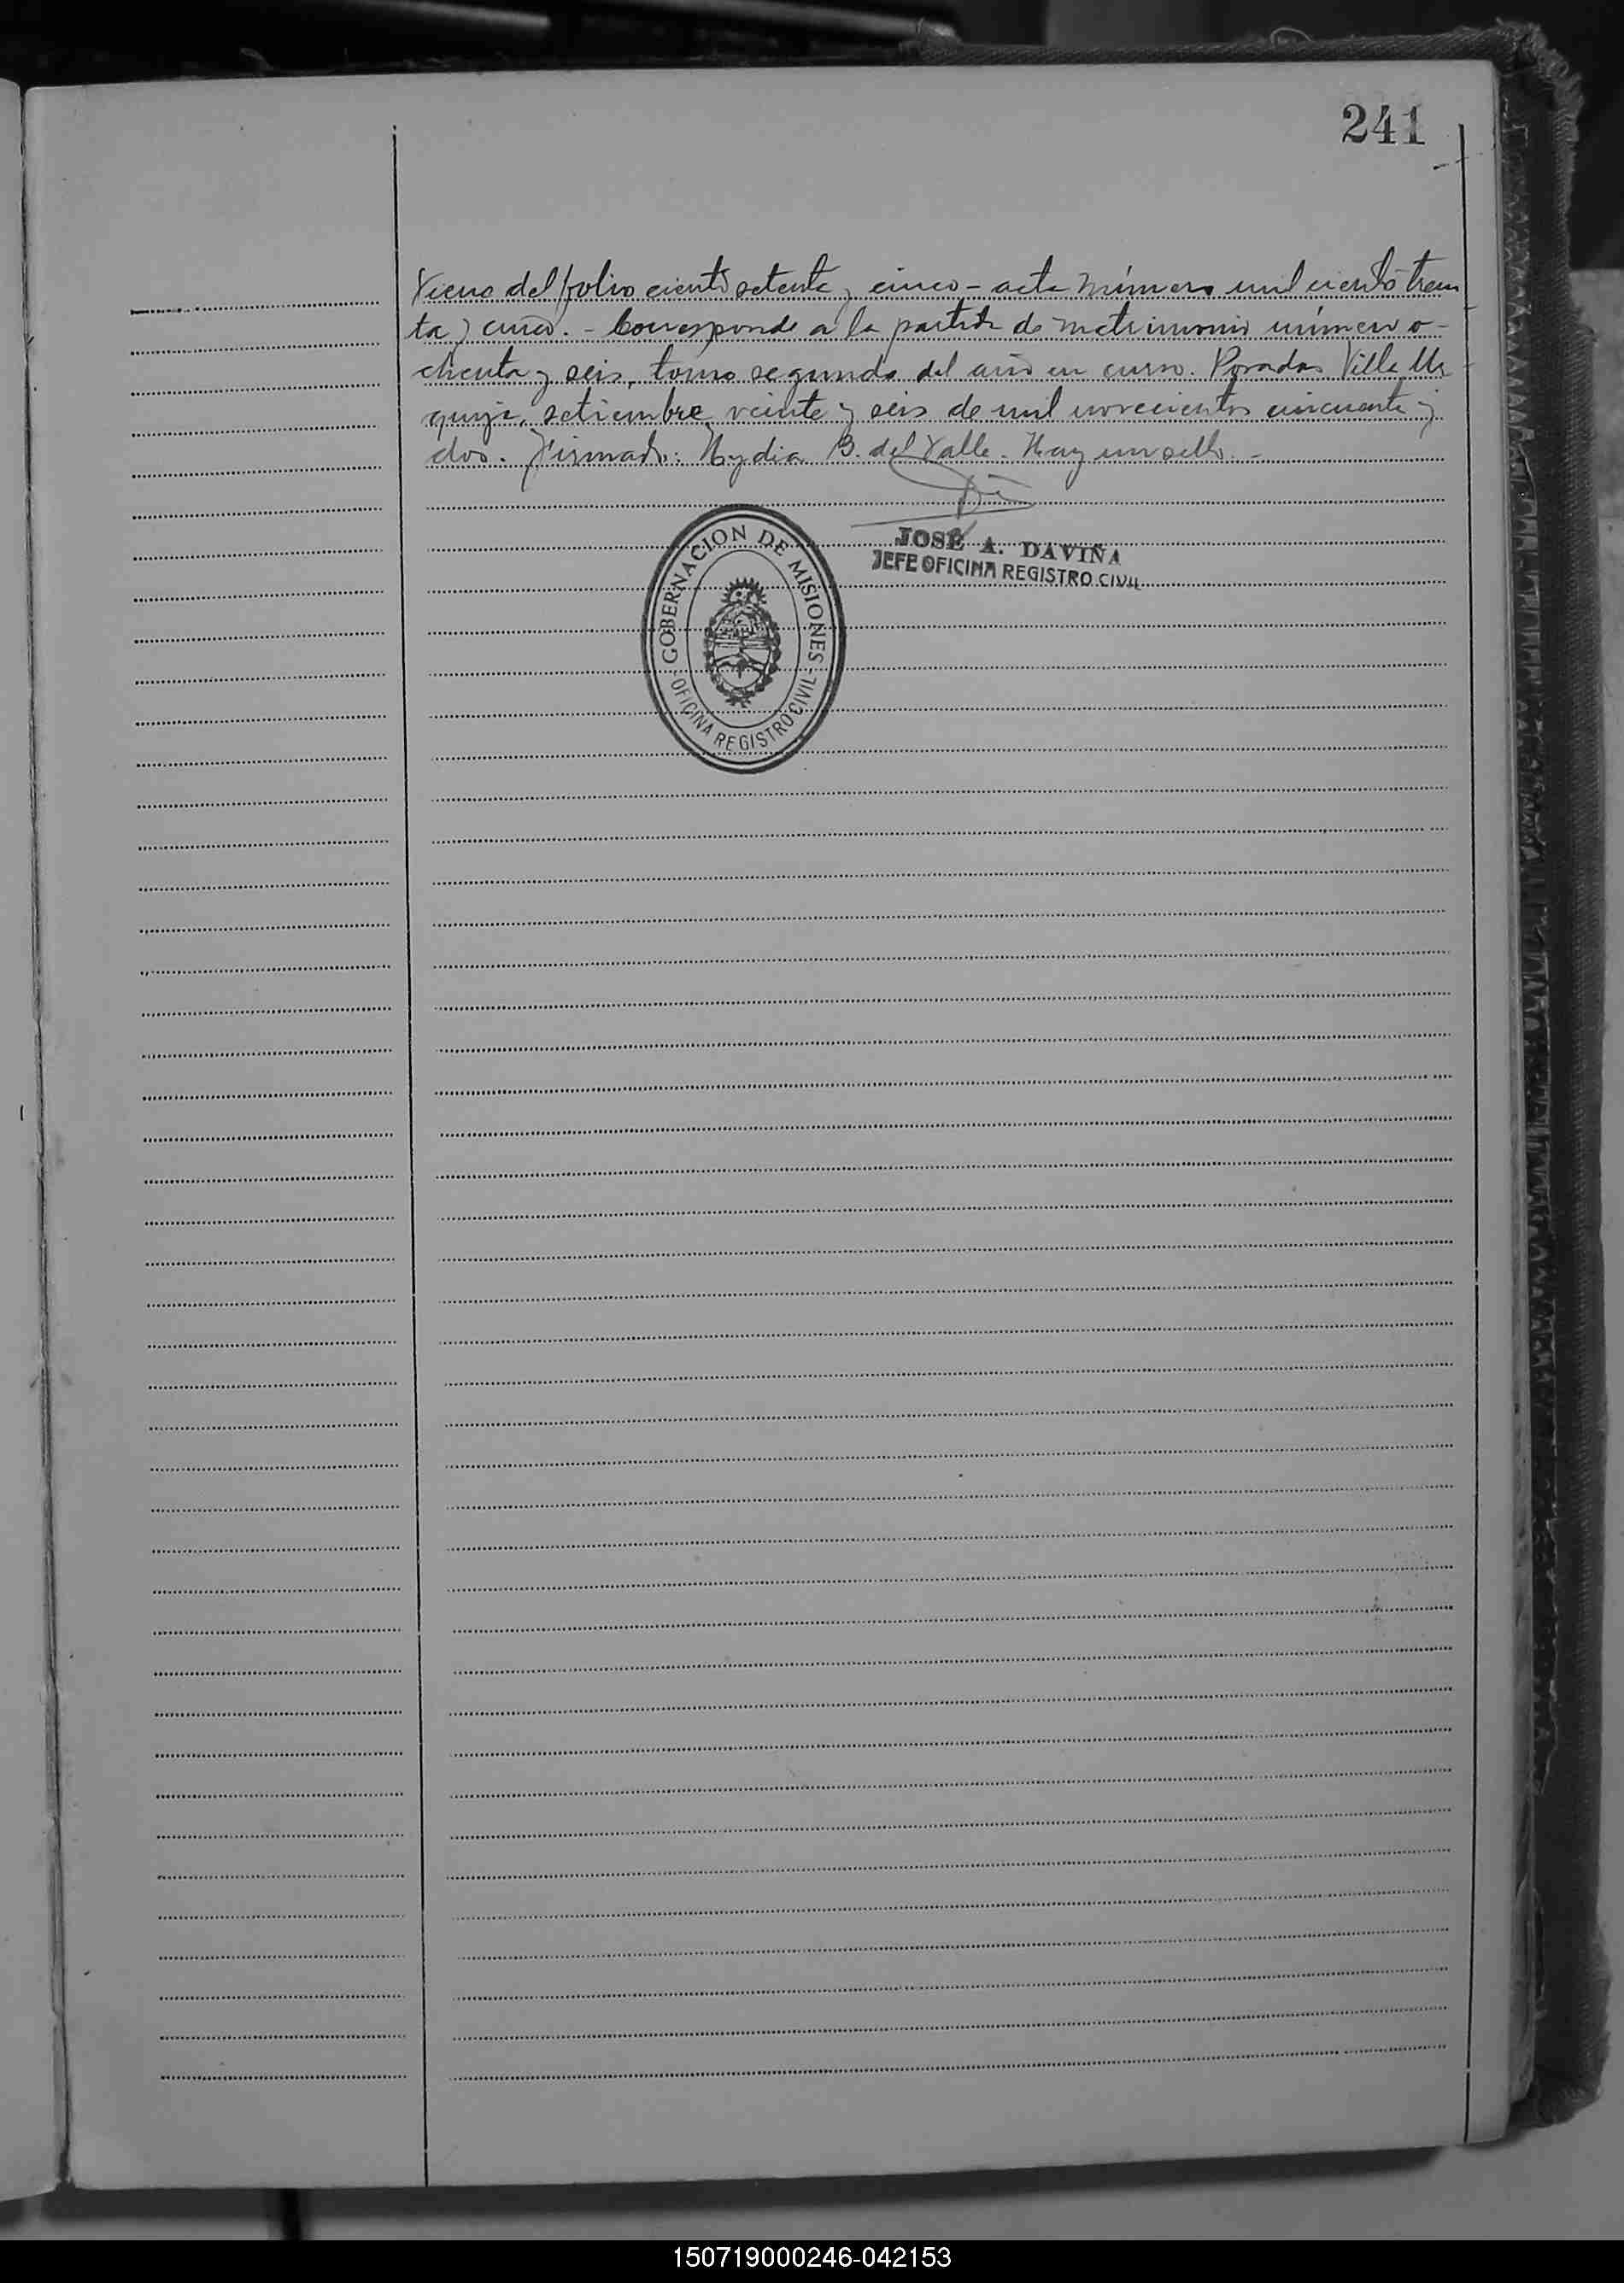 241
Viene del folio ciento setenta y cinco - acta número mil ciento trein
ta y cinco. - Corresponde a la partida de matrimonio número o-
chenta y seis, tomo segundo del año en curso. Posadas Villa Ur
quiza, setiembre veinte y seis de mil novecientos cincuenta y
dos. Firmado: Nydia B. del Valle. Hay un sello. -
JOSÉ A. DAVIÑA
JEFE OFICINA REGISTRO CIVIL
GOBERNACION DE MISIONES
OFICINA REGISTRO CIVIL
150719000246-042153